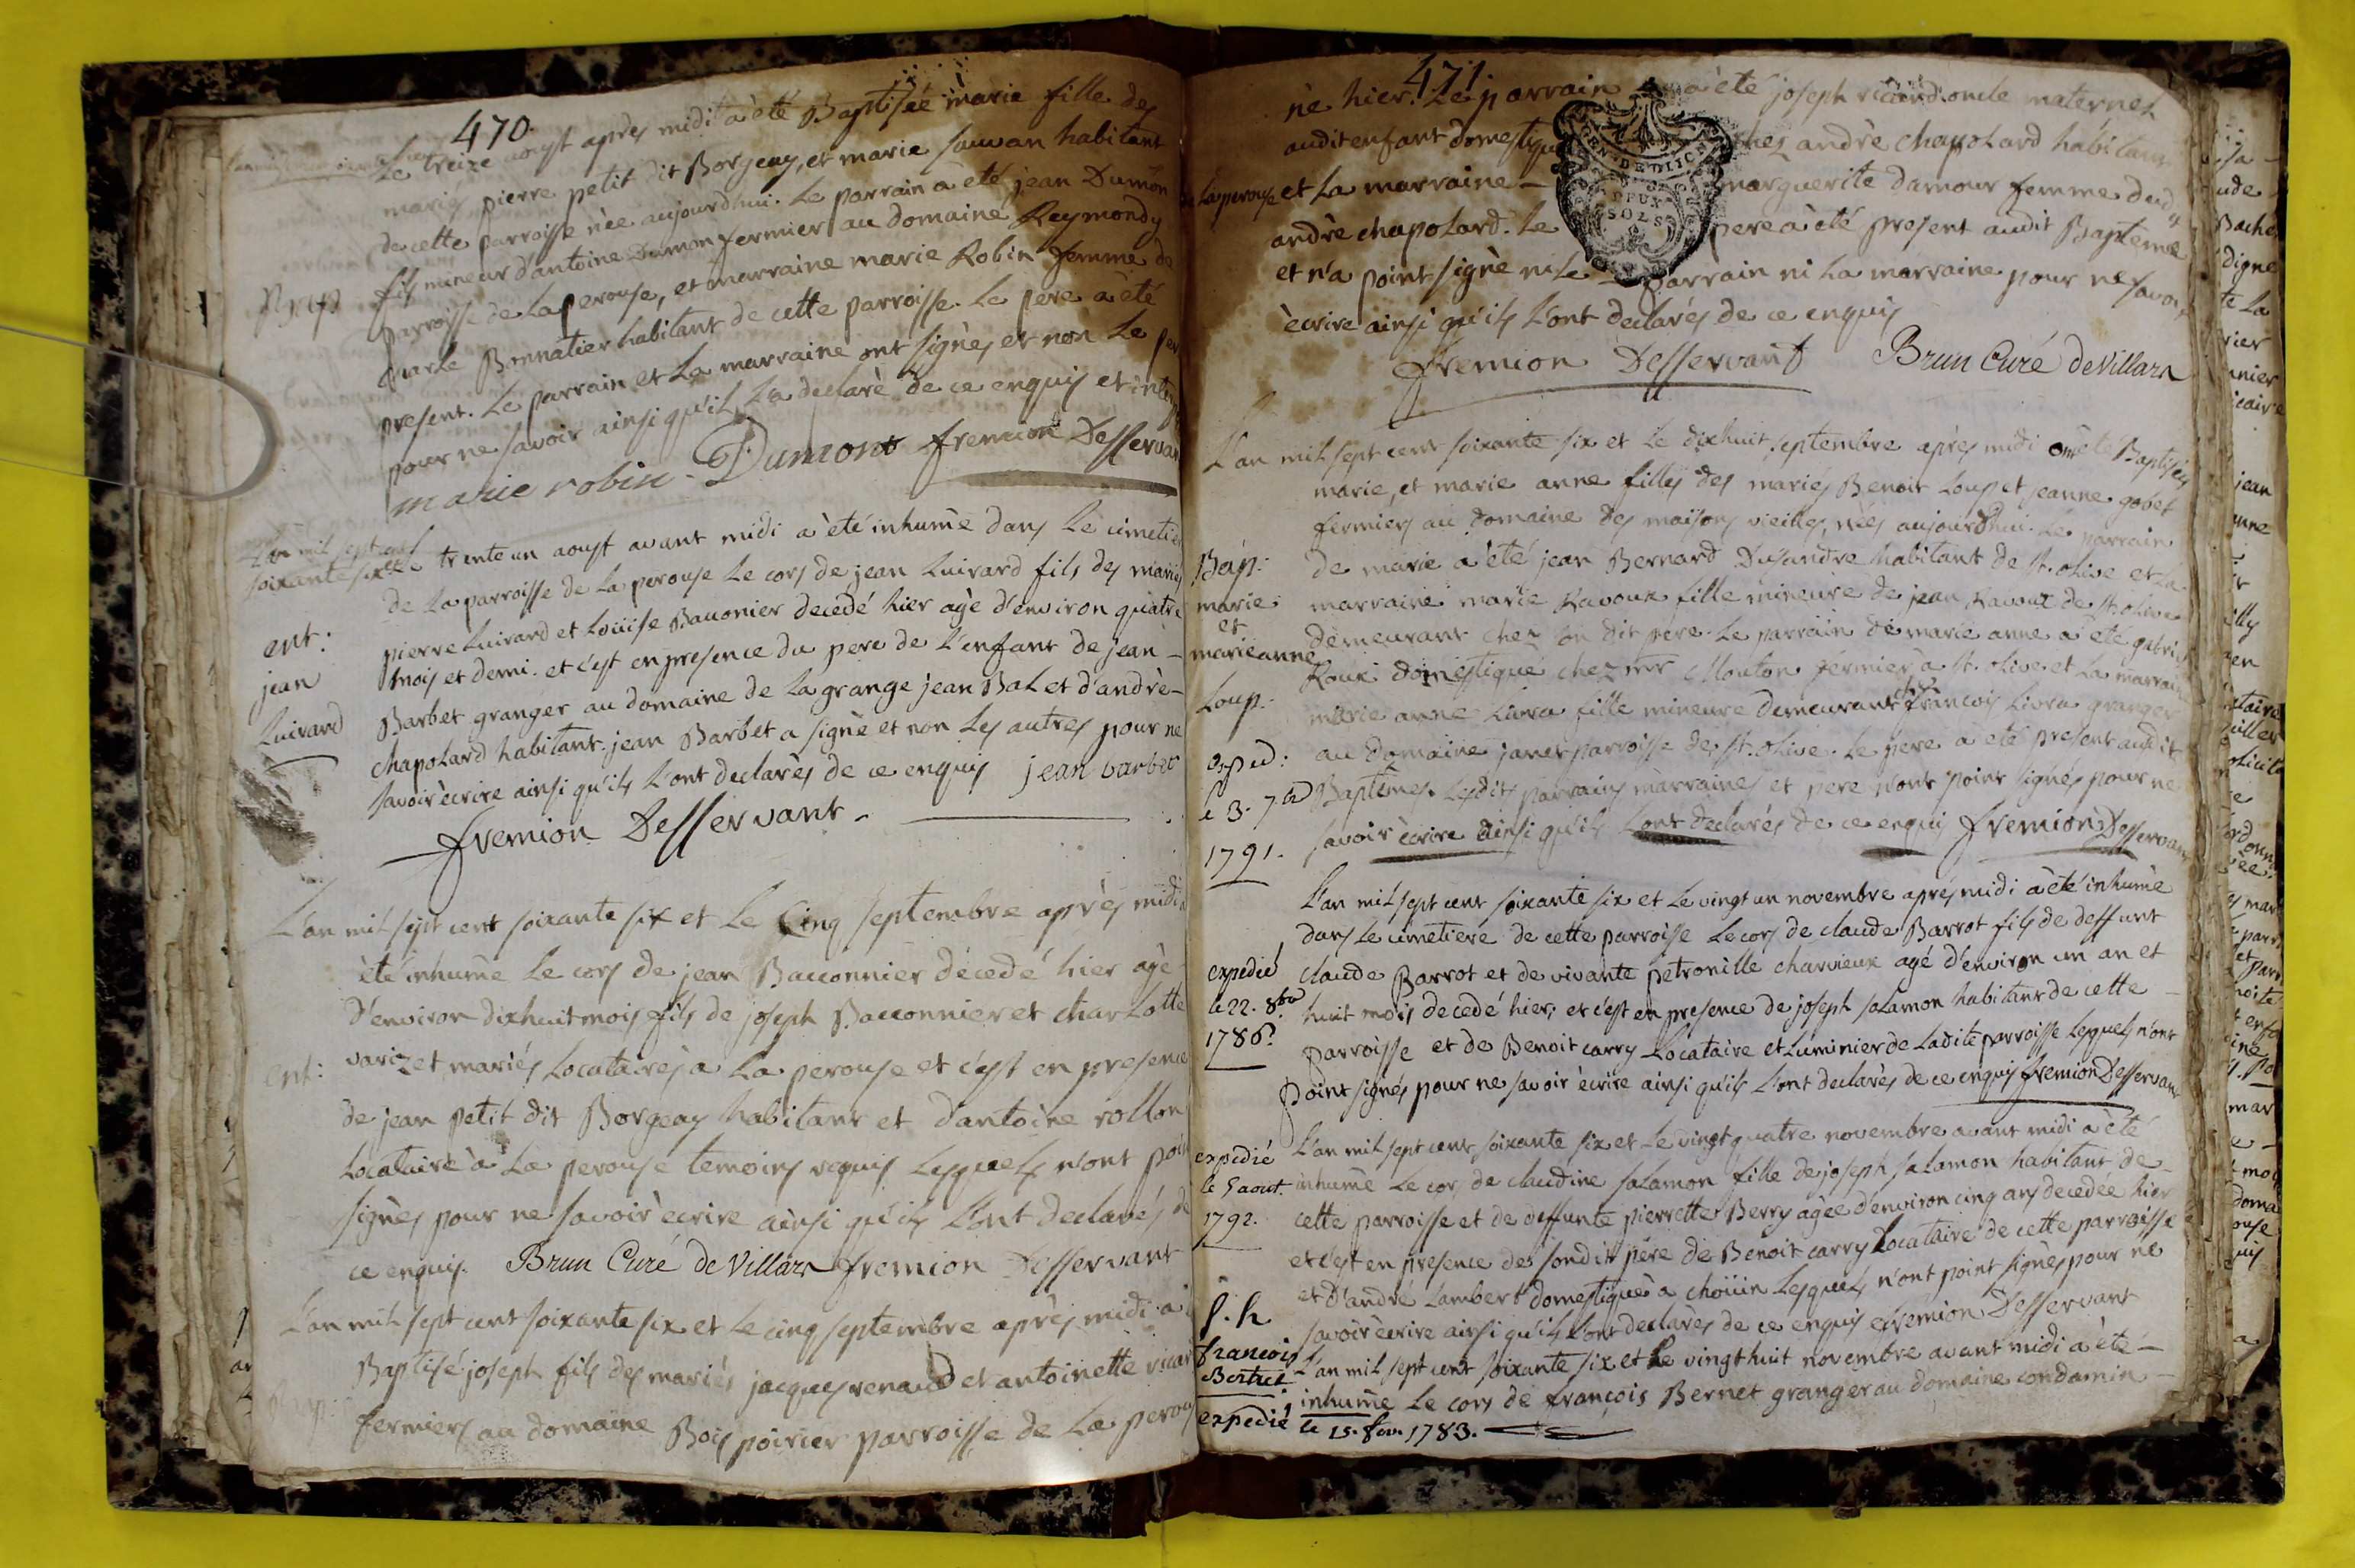 470.
Le treize aoust apres midi a èté Baptisée marie fille des
mariés pierre petit dit Borjeay, et marie sauvan habitant
de cette parroisse née aujourdhui. Le parrain a èté jean Dumon
fils mineur d'antoine Dumon fermier au domaine Reymondy
parroisse de Laperouse, et marraine marie Robin femme de
Bonnatier habitant de cette parroisse. Le pere a èté
present. Le parrain et La marraine ont signés et non Le per
pour ne savoir ainsi qu'il L'a declaré de ce enquis et
marie robin - Dumont fremion Desservan
L'an mil sept cent
soixante six et le trente un aoust avant midi a èté inhumè dans Le cimetie
de La parroisse de La perouse Le cors de jean Luirard fils des mariés
pierre Luirard et Loüise Bauonier decedé hier agè d'environ quatre
ent:
mois et demi. et c'est en presence du pere de L'enfant de jean -
jean
Barbet granger au domaine de La grange jean Bal et d'andrè -
Luirard
chapolard habitant. jean Barbet a signè et non Les autres pour ne
savoir ècrire ainsi qu'ils L'ont declarès de ce enquis jean barbet
fremion Desservant -
L'an mil sept cent soixante six et Le Cinq septembre après midi a
èté inhumè Le cors de jean Bacconnier decedé hier agè
D'environ dixhuit mois fils de joseph Bacconnier et charLotte
ent: varizet mariés Locataires a La perouse et c'est en presence
de jean petit dit Borgeay habitant et d'antoine rollon
Locataire à La perouse temoins requis Lesquels n'ont poin
signès pour ne savoir ècrire ainsi qu'ils L'ont declarés de
ce enquis. Brun Curé de Villars fremion Desservant
L'an mil sept cent soixante six et Le cinq septembre après midi a
Baptisé joseph fils des mariés jacques renaud et antoinette ricar
fermiers au domaine Bois poirier parroisse de La perous
471.
nè hier. Le parrain a èté joseph ricard oncle maternel
audit enfant domestique chez andrè chapolard habitant
de Laperouse et La marraine - marguerite damour femme dud.
andrè chapolard. Le pere a èté present audit Baptême
et n'a point signè ni Le parrain ni La marraine pour ne savoir
ècrire ainsi qu'ils L'ont declarés de ce enquis
GEN. DE DIJON
DEUX
SOLS
fremion Desservant Brun Curé de Villars
L'an mil sept cent soixante six et Le dixhuit septembre après midi ont èté Baptisées
marie, et marie anne filles des mariés Benoit Loup et jeanne gobet
fermiers au domaine des maisons vieilles, nées aujourdhui. Le parrain
Bap: de marie a èté jean Bernard Dusandre habitant de st. olive et La
marie marraine marie Ravoux fille mineure de jean Ravoux de st. olive
et demeurant chez son dit père. Le parrain de marie anne a èté gabriel
marieanne Roux domestique chez mr Mouton fermier a st. olive. et La marraine
Loup. marie anne Livra fille mineure demeurant chez françois Livra granger
exped: au domaine janet parroisse de st. olive. Le pere a èté present audit
le 3. 7.bre Baptêmes. Lesdits parrains marraines et pere n'ont point signés pour ne
1791. savoir ècrire ainsi qu'ils L'ont declarés de ce enquis fremion Desservant
L'an mil sept cent soixante six et Le vingt un novembre après midi a èté inhumè
dans Le cimetiere de cette parroisse Le cors de claude Barrot fils de deffunt
expedié claude Barrot et de vivante petronille charvieux agé d'environ un an et
le 22. 8.bre huit mois decedé hier, et c'est en presence de joseph salamon habitant de cette -
1786. parroisse et de Benoit carry Locataire et Luminier de Ladite parroisse Lesquels n'ont
point signés pour ne savoir ècrire ainsi qu'ils L'ont declarès de ce enquis fremion Desservant
expedié L'an mil sept cent soixante six et Le vingt quatre novembre avant midi a èté
le 5 aout. inhumè Le cors de claudine salamon fille de joseph salamon habitant de -
1792. cette parroisse et de deffunte pierrette Berry agèe d'environ cinq ans decedèe hier
et c'est en presence de son dit père de Benoit carry Locataire de cette parroisse
et d'andrè Lambert domestique a choüin Lesquels n'ont point signés pour ne
S. h. savoir ècrire ainsi qu'ils L'ont declarès de ce enquis fremion Desservant
francois L'an mil sept cent soixante six et Le vingt huit novembre avant midi a èté -
Bertnet inhumè Le cors de françois Bernet granger au domaine condamin -
expedié le 15. fev. 1783.